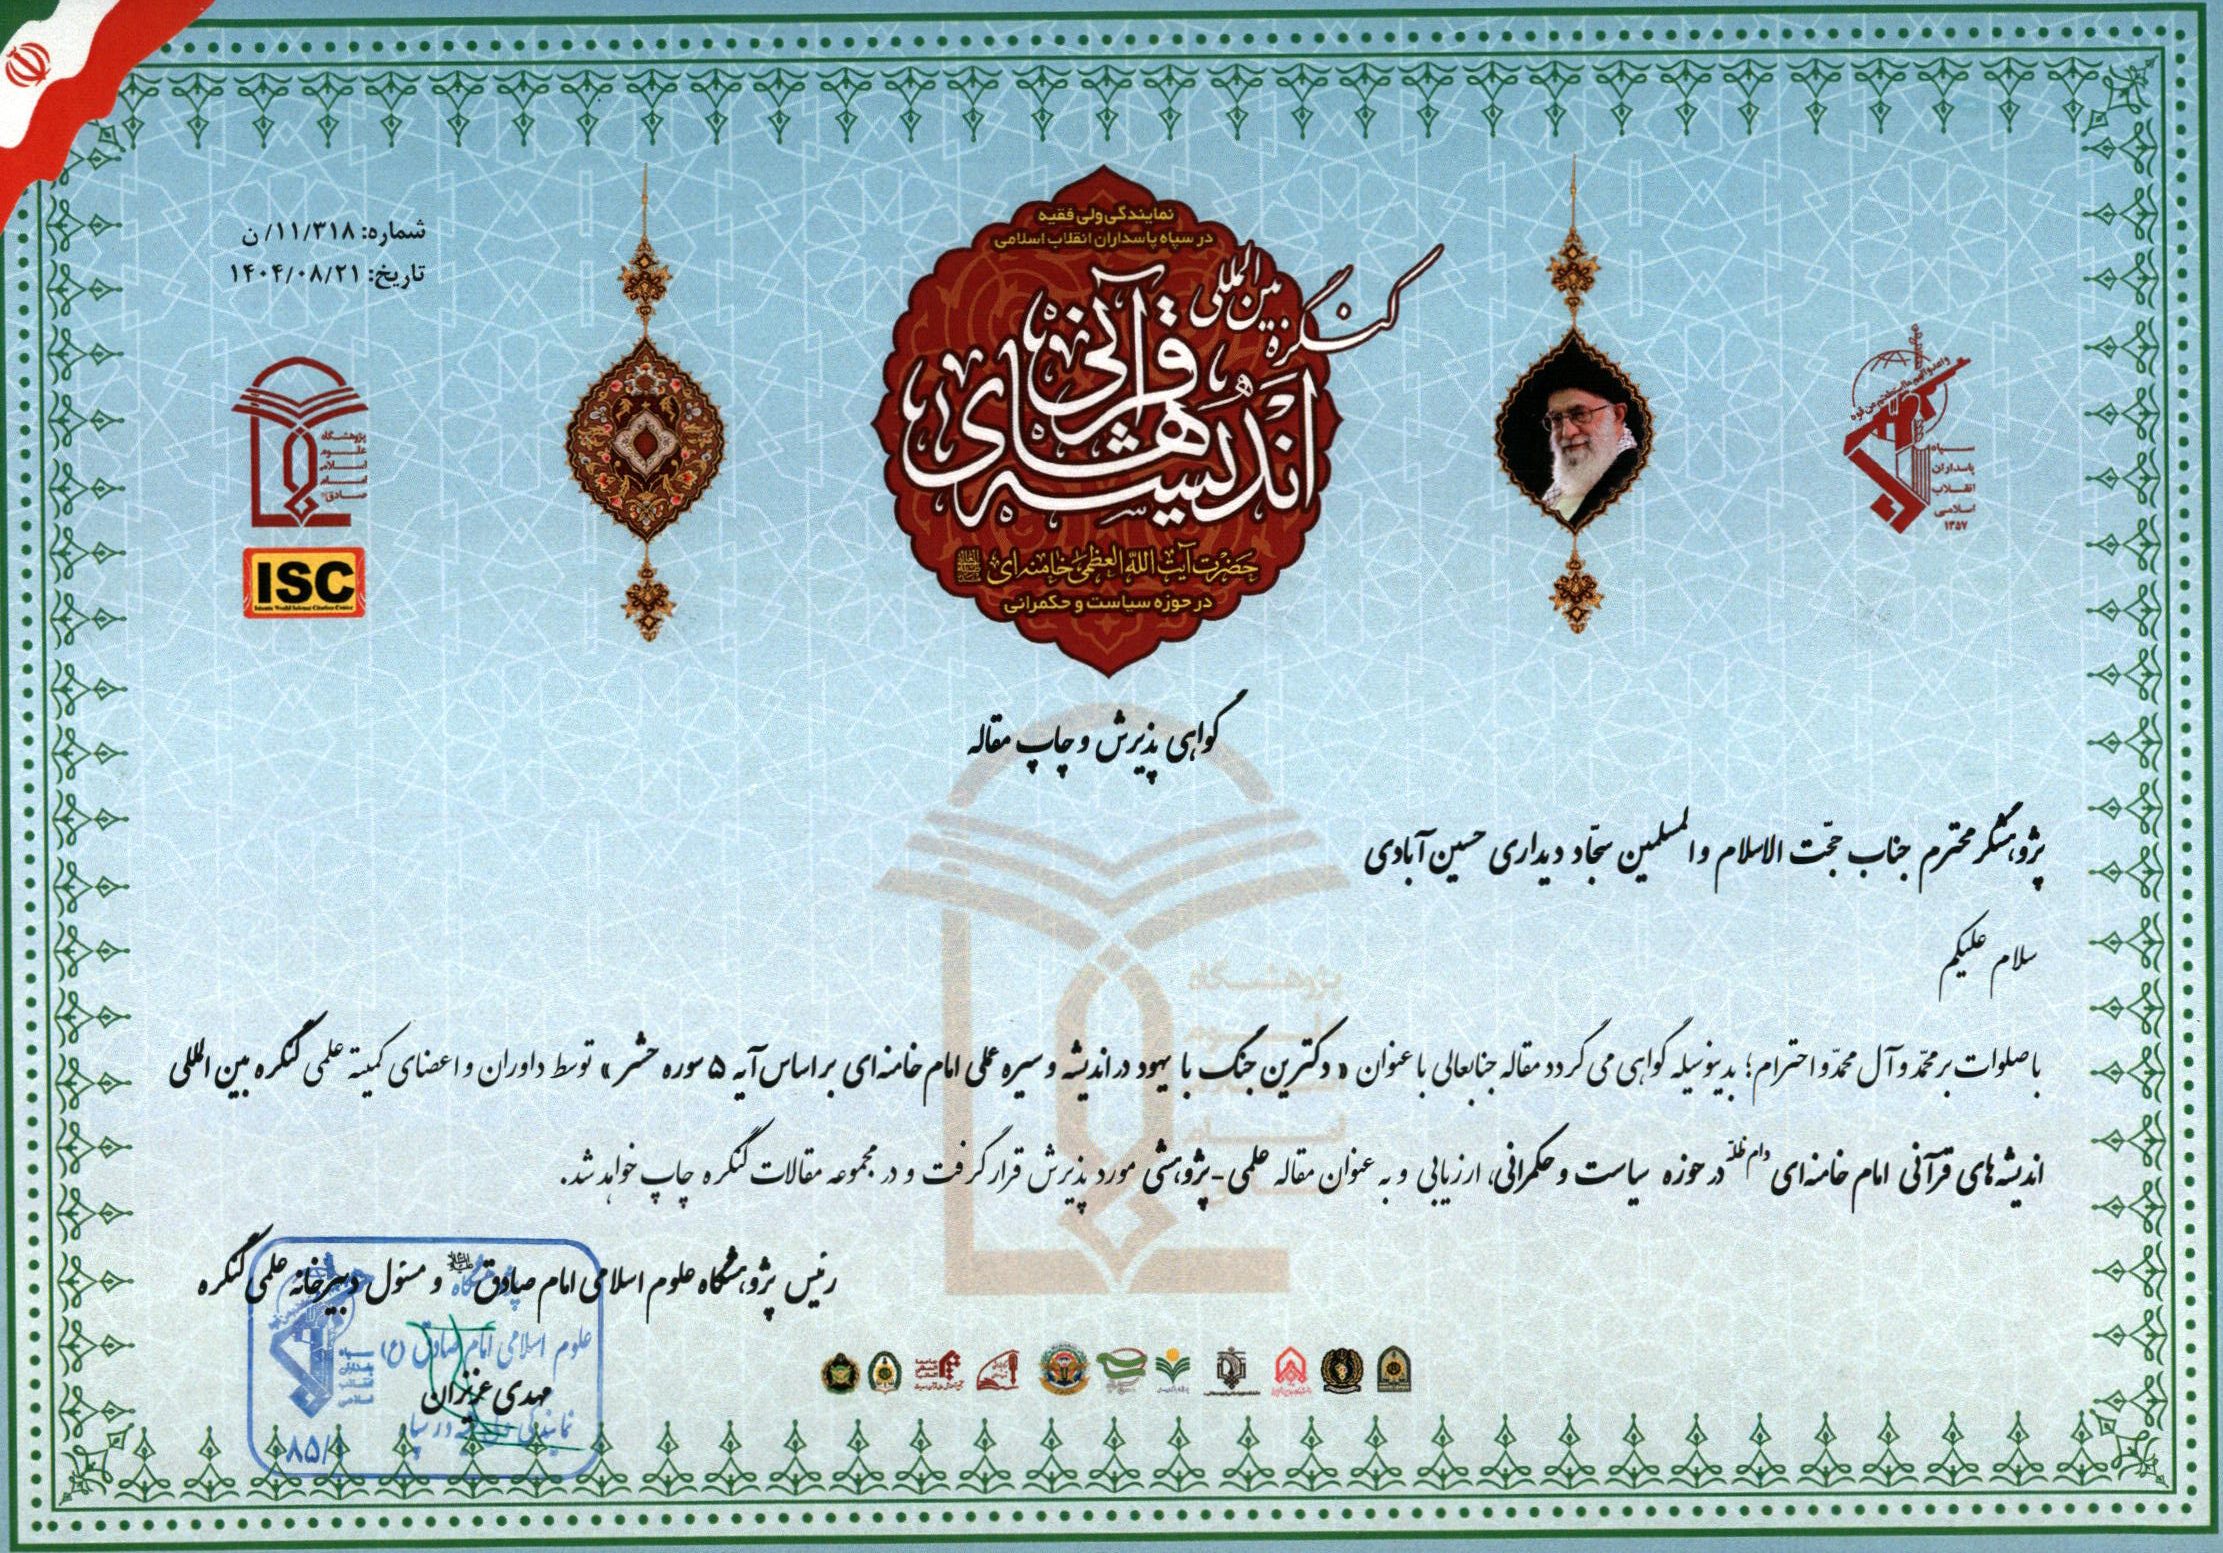 شماره: ۱۱/۳۱۸/ن
تاریخ: ۱۴۰۴/۰۸/۲۱
نمایندگی ولی فقیه
در سپاه پاسداران انقلاب اسلامی
کنگره بین المللی
اندیشه‌های قرآنی
حضرت آیت الله العظمی خامنه‌ای
در حوزه سیاست و حکمرانی
سپاه
پاسداران
انقلاب
اسلامی
۱۳۵۷
پژوهشگاه
علوم
اسلامی
امام
صادق
ISC
Islamic World Science Citation Center
گواهی پذیرش و چاپ مقاله
پژوهشگر محترم جناب حجّت الاسلام والمسلمین سجّاد دیداری حسین آبادی
سلام علیکم
با صلوات بر محمّد و آل محمّد و احترام؛ بدینوسیله گواهی می گردد مقاله جنابعالی با عنوان «دکترین جنگ با یهود در اندیشه و سیره عملی امام خامنه‌ای بر اساس آیه ۵ سوره حشر» توسط داوران و اعضای کمیته علمی کنگره بین المللی
اندیشه‌های قرآنی امام خامنه‌ای دام ظلّه در حوزه سیاست و حکمرانی، ارزیابی و به عنوان مقاله علمی-پژوهشی مورد پذیرش قرار گرفت و در مجموعه مقالات کنگره چاپ خواهد شد.
رئیس پژوهشگاه علوم اسلامی امام صادق و مسئول دبیرخانه علمی کنگره
پژوهشگاه
علوم اسلامی امام صادق (ع)
مهدی عزیزان
نمایندگی ولی فقیه در سپاه